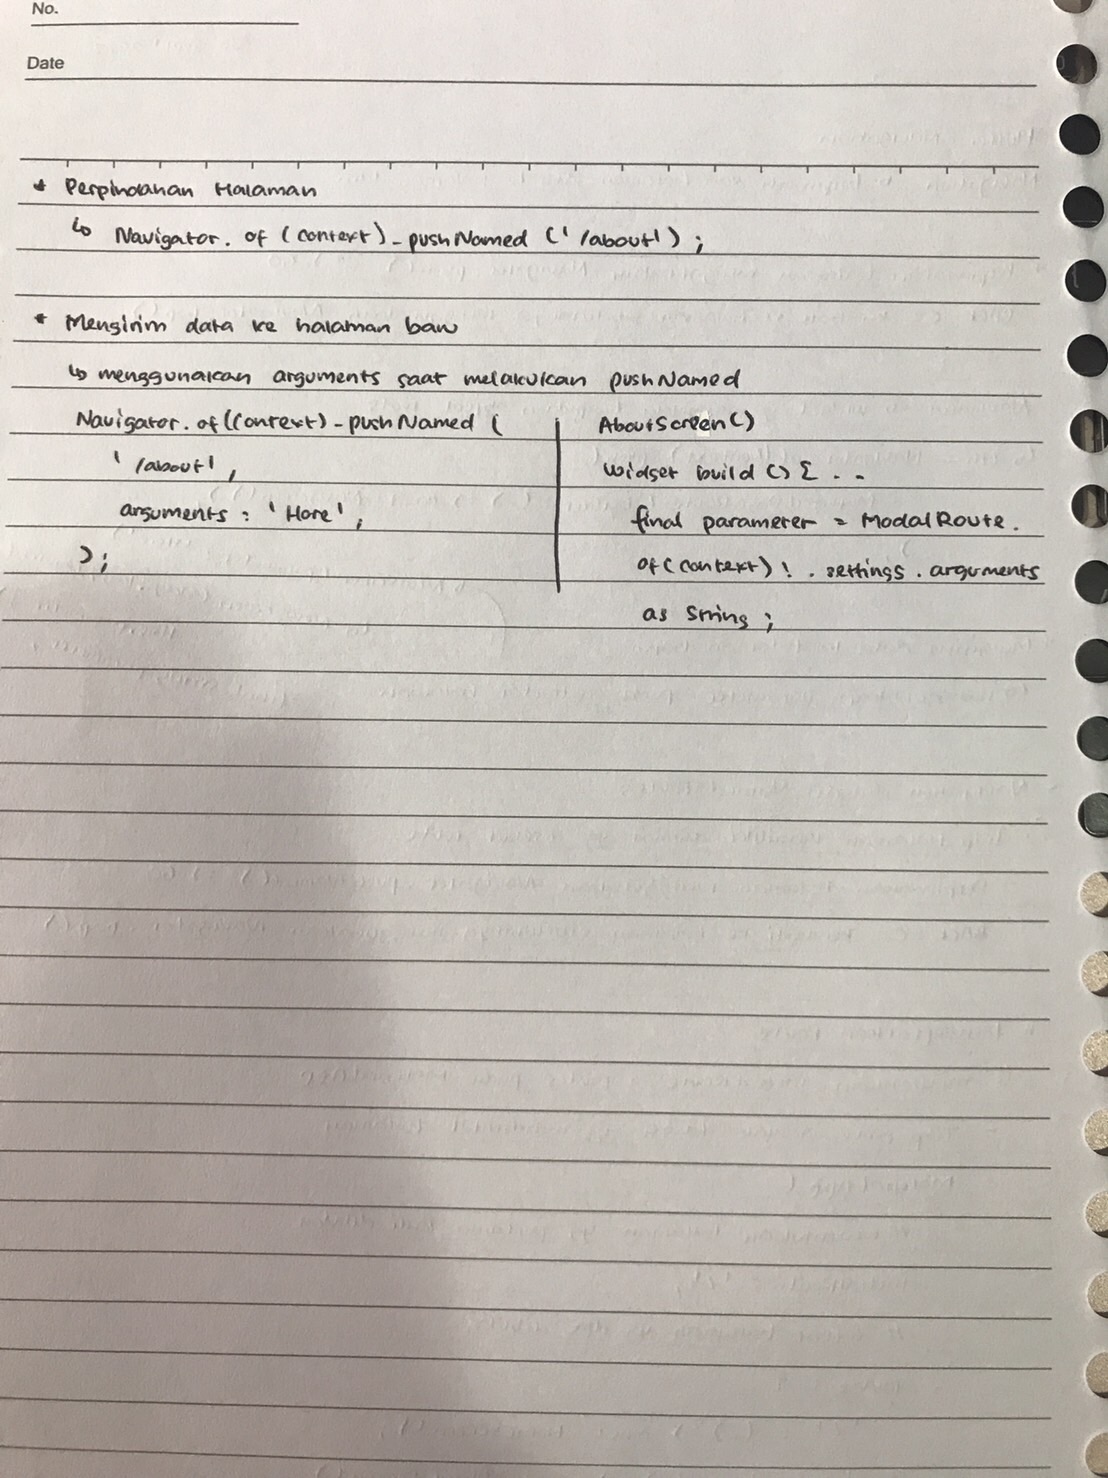 No.
Date
* Perpindahan Halaman
↳ Navigator. of (context)-pushNamed ('/about');
* Mengirim data ke halaman baru
↳ menggunakan arguments saat melakukan pushNamed
Navigator. of(context)-pushNamed (
'/about',
arguments : 'Hore',
);
AboutScreen()
Widget build () { . .
final parameter = ModalRoute.
of(context) ! . settings . arguments
as String ;